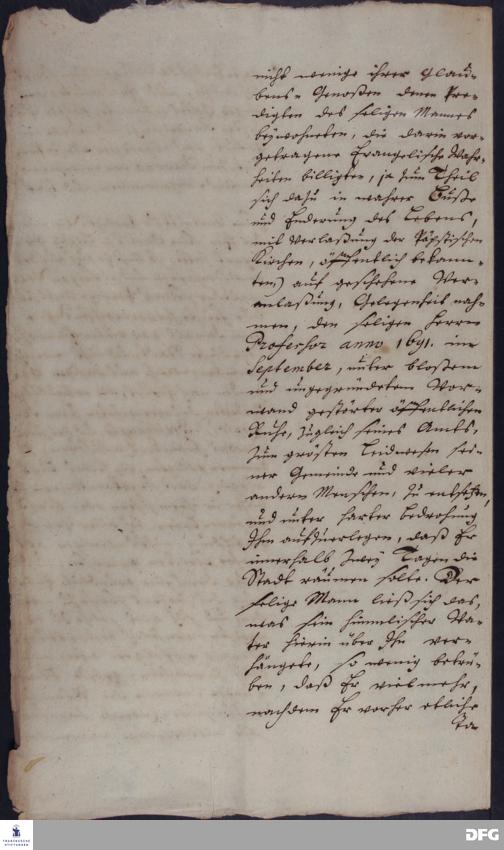 nicht wenige ihrer Glau-
bens-Genoßen denen Pre-
digten des seligen Mannes
beywohneten, die darin vor-
getragene Evangelische Wahr-
heiten billigten, ja zum Theil
sich dazu in wahrer Buße
und Enderung des Lebens,
mit Verlaßung der Päpstischen
Kirchen, öffentlich bekann-
ten,) auf geschehene Ver-
anlaßung, Gelegenheit nah-
men, den seligen Herrn
Professor anno 1691. im
September, unter bloßem
und ungegründetem Vor-
wand gestörter öffentlichen
Ruhe, zugleich seines Amts,
zum grösten Leidwesen sei-
ner Gemeinde und vieler
andern Menschen, zu entsetzen,
und unter harter Bedrohung
Ihm aufzuerlegen, daß Er
innerhalb zwey Tagen die
Stadt räumen solte. Der
selige Mann ließ sich das,
was sein himmlischer Va-
ter hierin über Ihn ver-
hängete, so wenig betrü-
ben, daß Er vielmehr,
nachdem Er vorher etliche
Ta-
FRANCKESCHE
STIFTUNGEN
DFG